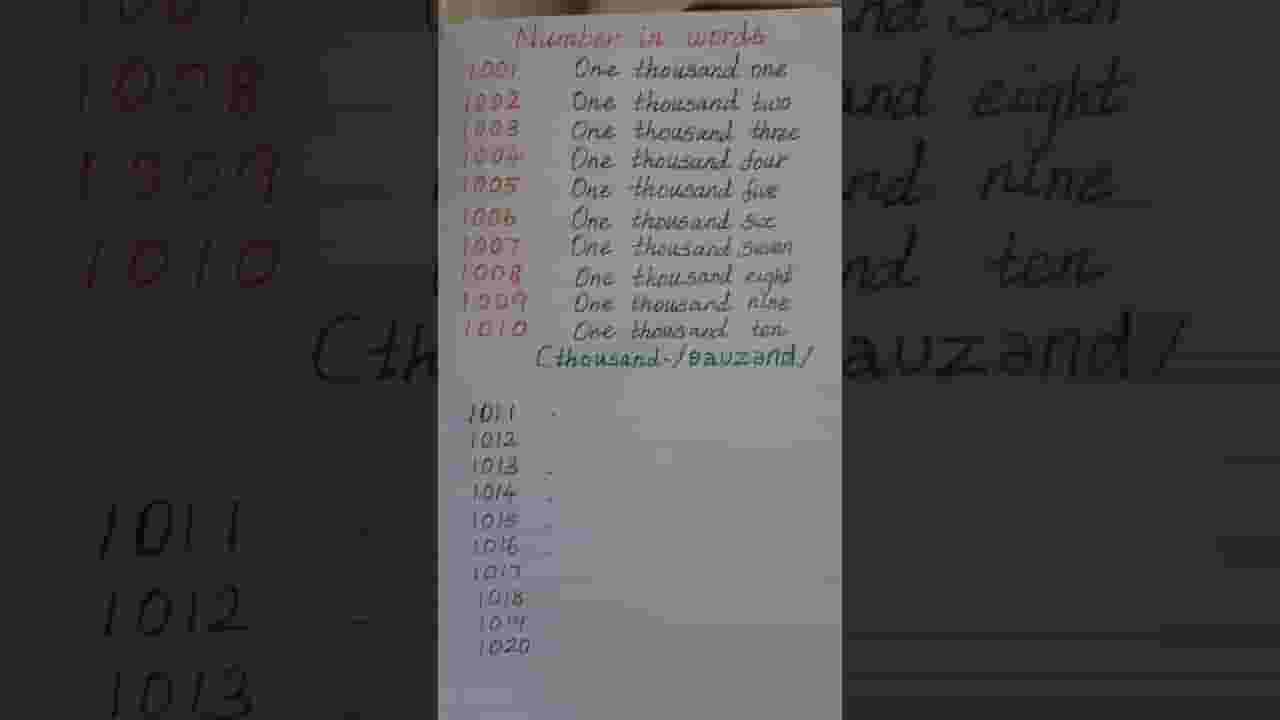 Number in words
1001 One thousand one
1002 One thousand two
1003 One thousand three
1004 One thousand four
1005 One thousand five
1006 One thousand six
1007 One thousand seven
1008 One thousand eight
1009 One thousand nine
1010 One thousand ten
(thousand-/θauzand/
1011 -
1012
1013 -
1014 -
1015 -
1016 -
1017
1018
1019
1020